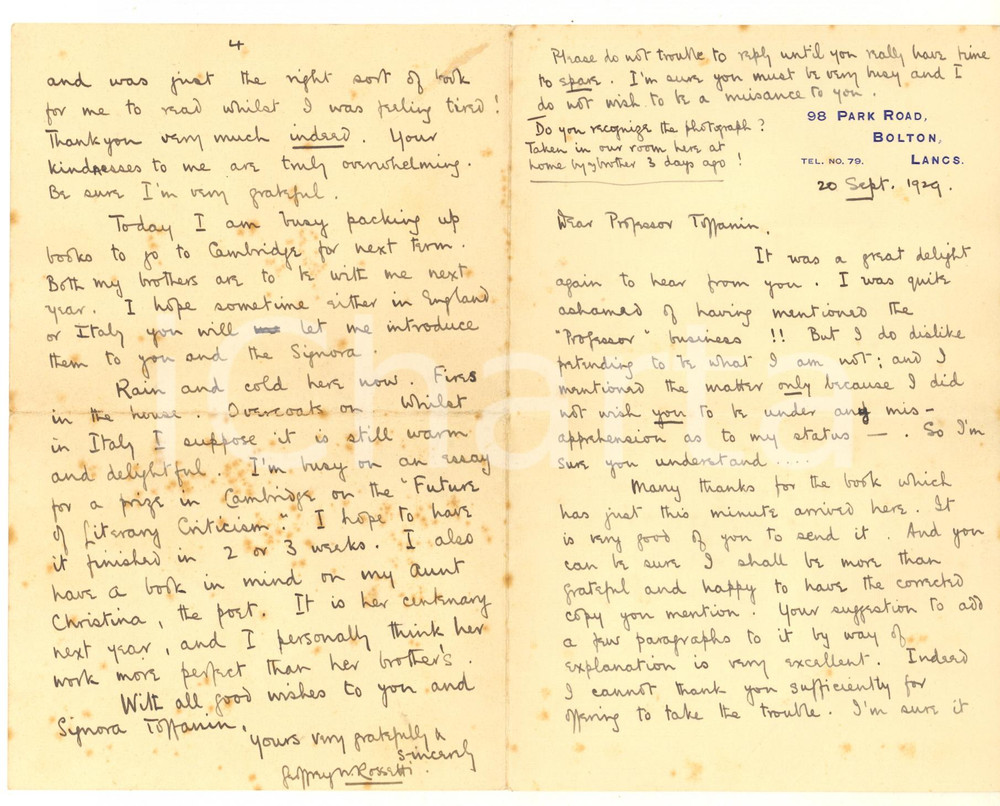 Please do not trouble to reply until you really have time
to spare. I'm sure you must be very busy and I
do not wish to be a nuisance to you.
Do you recognize the photograph?
Taken in our room here at
home by my brother 3 days ago!
98 PARK ROAD,
BOLTON,
TEL. NO. 79. LANCS.
20 Sept. 1929.
Dear Professor Toffanin,
It was a great delight
again to hear from you. I was quite
ashamed of having mentioned the
"Professor" business !! But I do dislike
pretending to be what I am not; and I
mentioned the matter only because I did
not wish you to be under any mis-
apprehension as to my status —. So I'm
sure you understand ....
Many thanks for the book which
has just this minute arrived here. It
is very good of you to send it. And you
can be sure I shall be more than
grateful and happy to have the corrected
copy you mention. Your suggestion to add
a few paragraphs to it by way of
explanation is very excellent. Indeed
I cannot thank you sufficiently for
offering to take the trouble. I'm sure it
4
and was just the right sort of book
for me to read whilst I was feeling tired!
Thankyou very much indeed. Your
kindnesses to me are truly overwhelming.
Be sure I'm very grateful.
Today I am busy packing up
books to go to Cambridge for next term.
Both my brothers are to be with me next
year. I hope sometime either in England
or Italy you will let me introduce
them to you and the Signora.
Rain and cold here now. Fires
in the house. Overcoats on whilst
in Italy I suppose it is still warm
and delightful. I'm busy on an essay
for a prize in Cambridge on the "Future
of Literary Criticism." I hope to have
it finished in 2 or 3 weeks. I also
have a book in mind on my Aunt
Christina, the poet. It is her centenary
next year, and I personally think her
work more perfect than her brother's.
With all good wishes to you and
Signora Toffanin,
Yours very gratefully &
sincerely
Geoffrey W. Rossetti.
iCharta